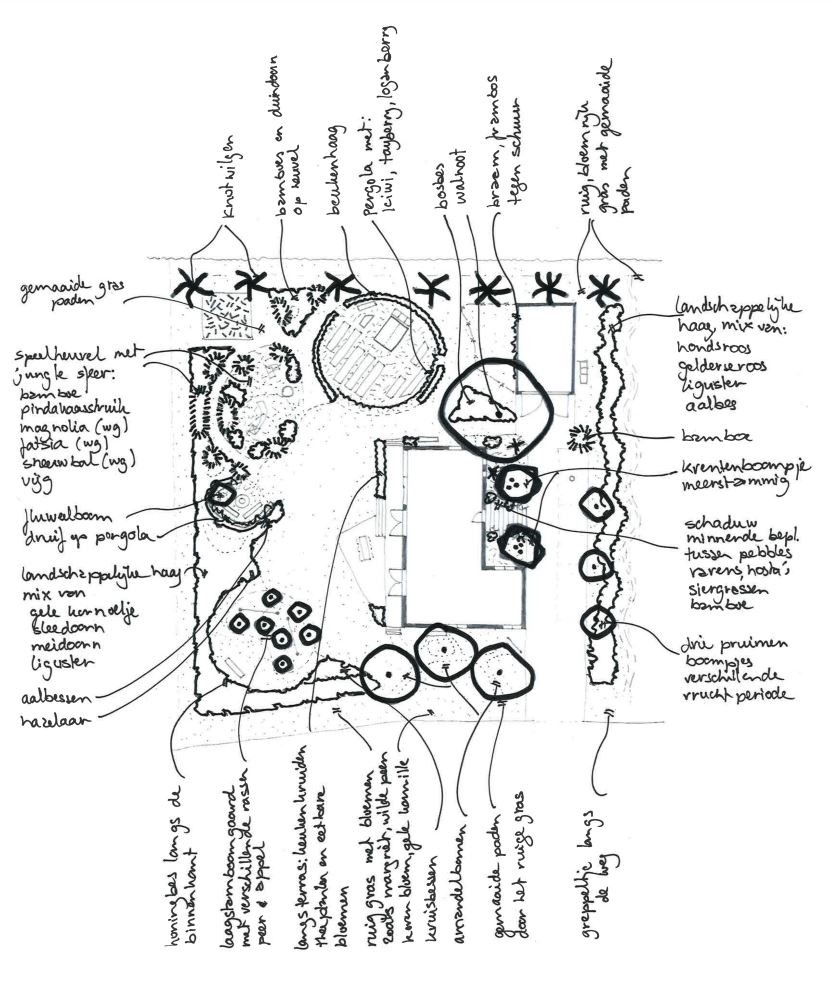 knotwilgen
bamboes en duindoorn
op heuvel
beukenhaag
pergola met:
kiwi, tayberry, loganberry
bosbes
walnoot
braam, frambos
tegen schuur
ruig, bloemrijk
gras met gemaaide
paden
gemaaide gras
paden
speelheuvel met
jungle sfeer:
bamboe
pindakaasstruik
magnolia (wg)
fatsia (wg)
sneeuwbal (wg)
vijg
fluweelboom
druif op pergola
landschappelijke haag
mix van
gele kornoelje
sleedoorn
meidoorn
liguster
aalbessen
hazelaar
landschappelijke
haag, mix van:
hondsroos
gelderseroos
liguster
aalbes
bamboe
krentenboompje
meerstammig
schaduw
minnende bepl.
tussen pebbles
varens, hosta's
siergrassen
bamboe
drie pruimen
boompjes
verschillende
vruchtperiode
honingbes langs de
binnenkant
laagstamboomgaard
met verschillende rassen
peer & appel
langs terras: keukenkruiden
theeplanten en eetbare
bloemen
ruig gras met bloemen
zoals margriet, wilde peen
koren bloem, gele kamille
kruisbessen
amandelbomen
gemaaide paden
door het ruige gras
greppeltje langs
de weg